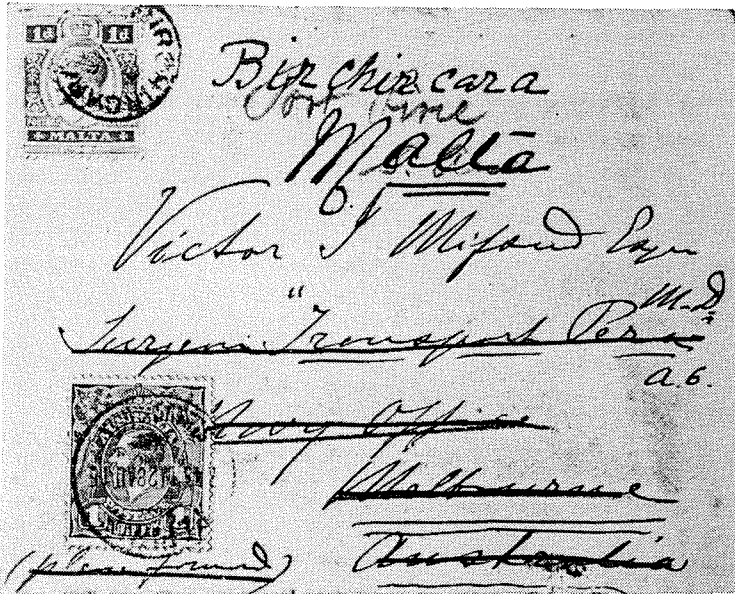 1d 1d
MALTA
Birchircara
Malta
Victor J Mifsud Esqr
M.D.
Surgeon "Transport Pera
A.6.
Navy Office
Melbourne
Australia
(please forward)